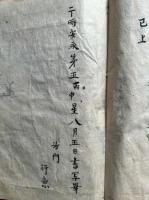 已上
于時安永第五丙申星八月五日書写畢
沙門